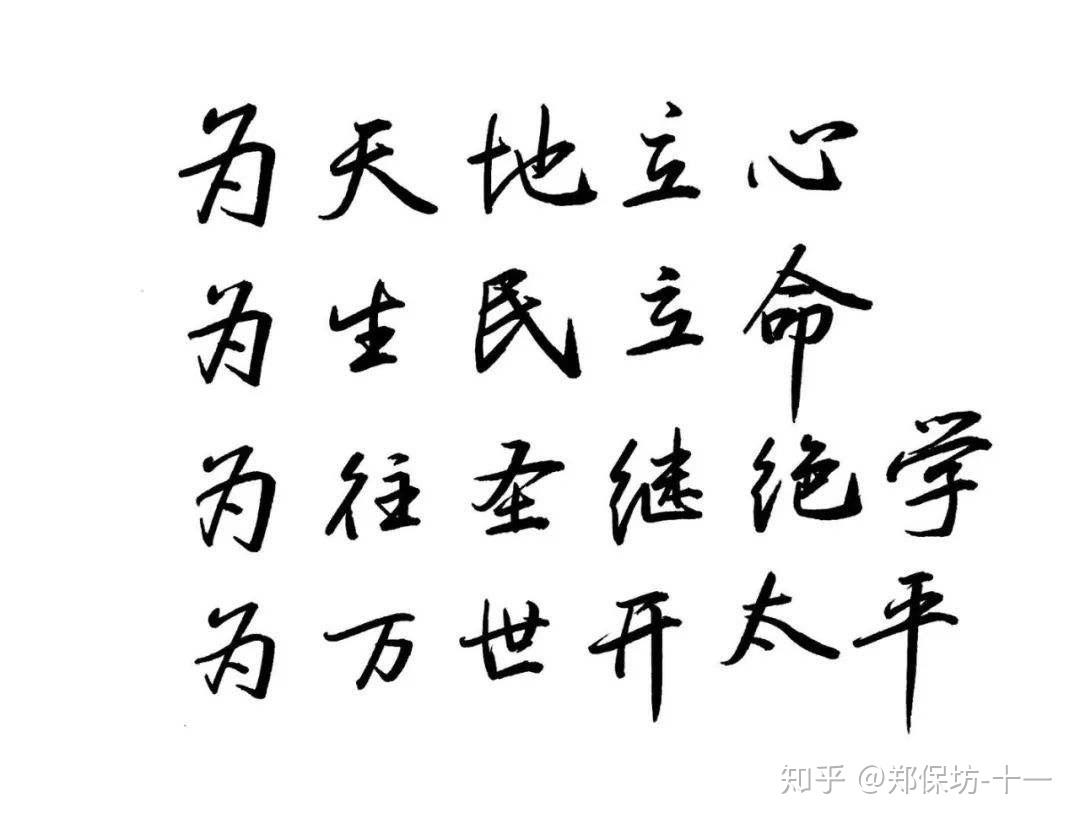 为天地立心
为生民立命
为往圣继绝学
为万世开太平
知乎 @郑保坊-十一